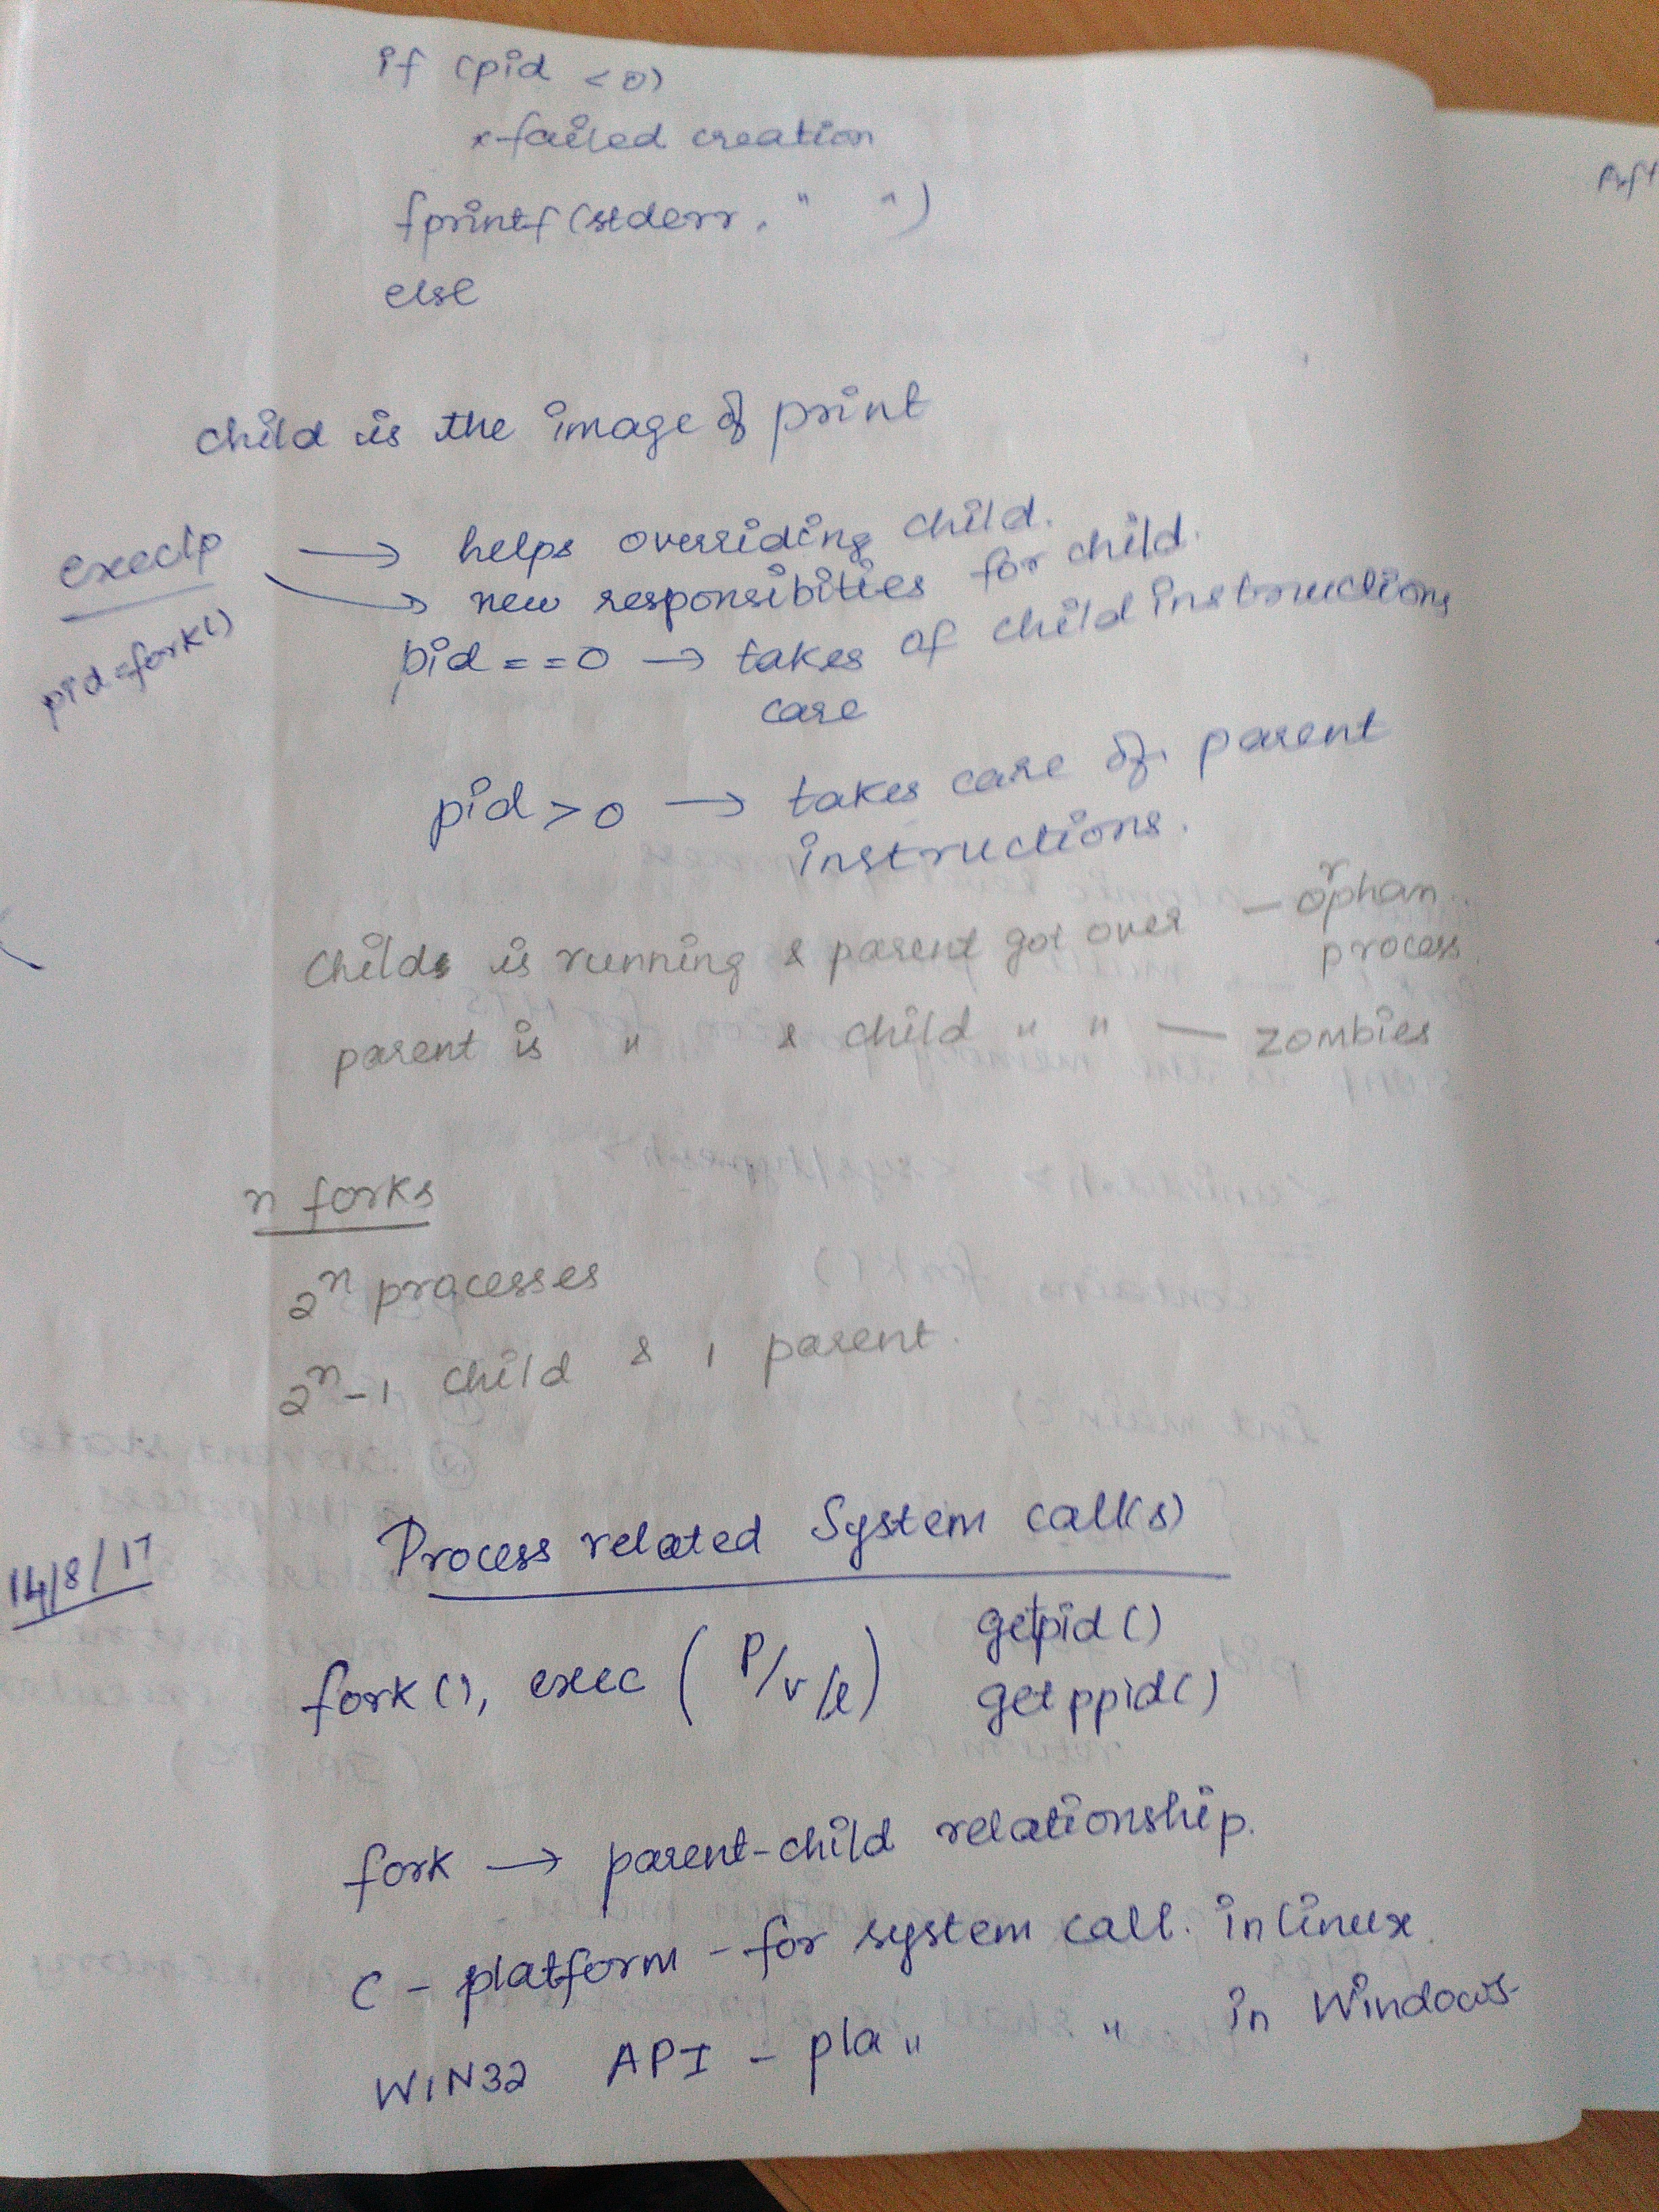 if (pid < 0)
x-failed creation
fprintf(stderr, " ")
else
child is the image of print
execlp → helps overriding child.
→ new responsibities for child.
pid=fork()
pid==0 → takes of child instructions
care
pid>0 → takes care of parent
instructions.
Childs is running & parent got over — orphan..
process.
parent is " & child " " — zombies
n forks
2^n processes
2^n-1 child & 1 parent.
14/8/17
Process related System call(s)
getpid()
fork(), exec (P/v/l)
getppid()
fork → parent-child relationship.
C - platform - for system call. in linux.
WIN32 API - pla " " in Windows